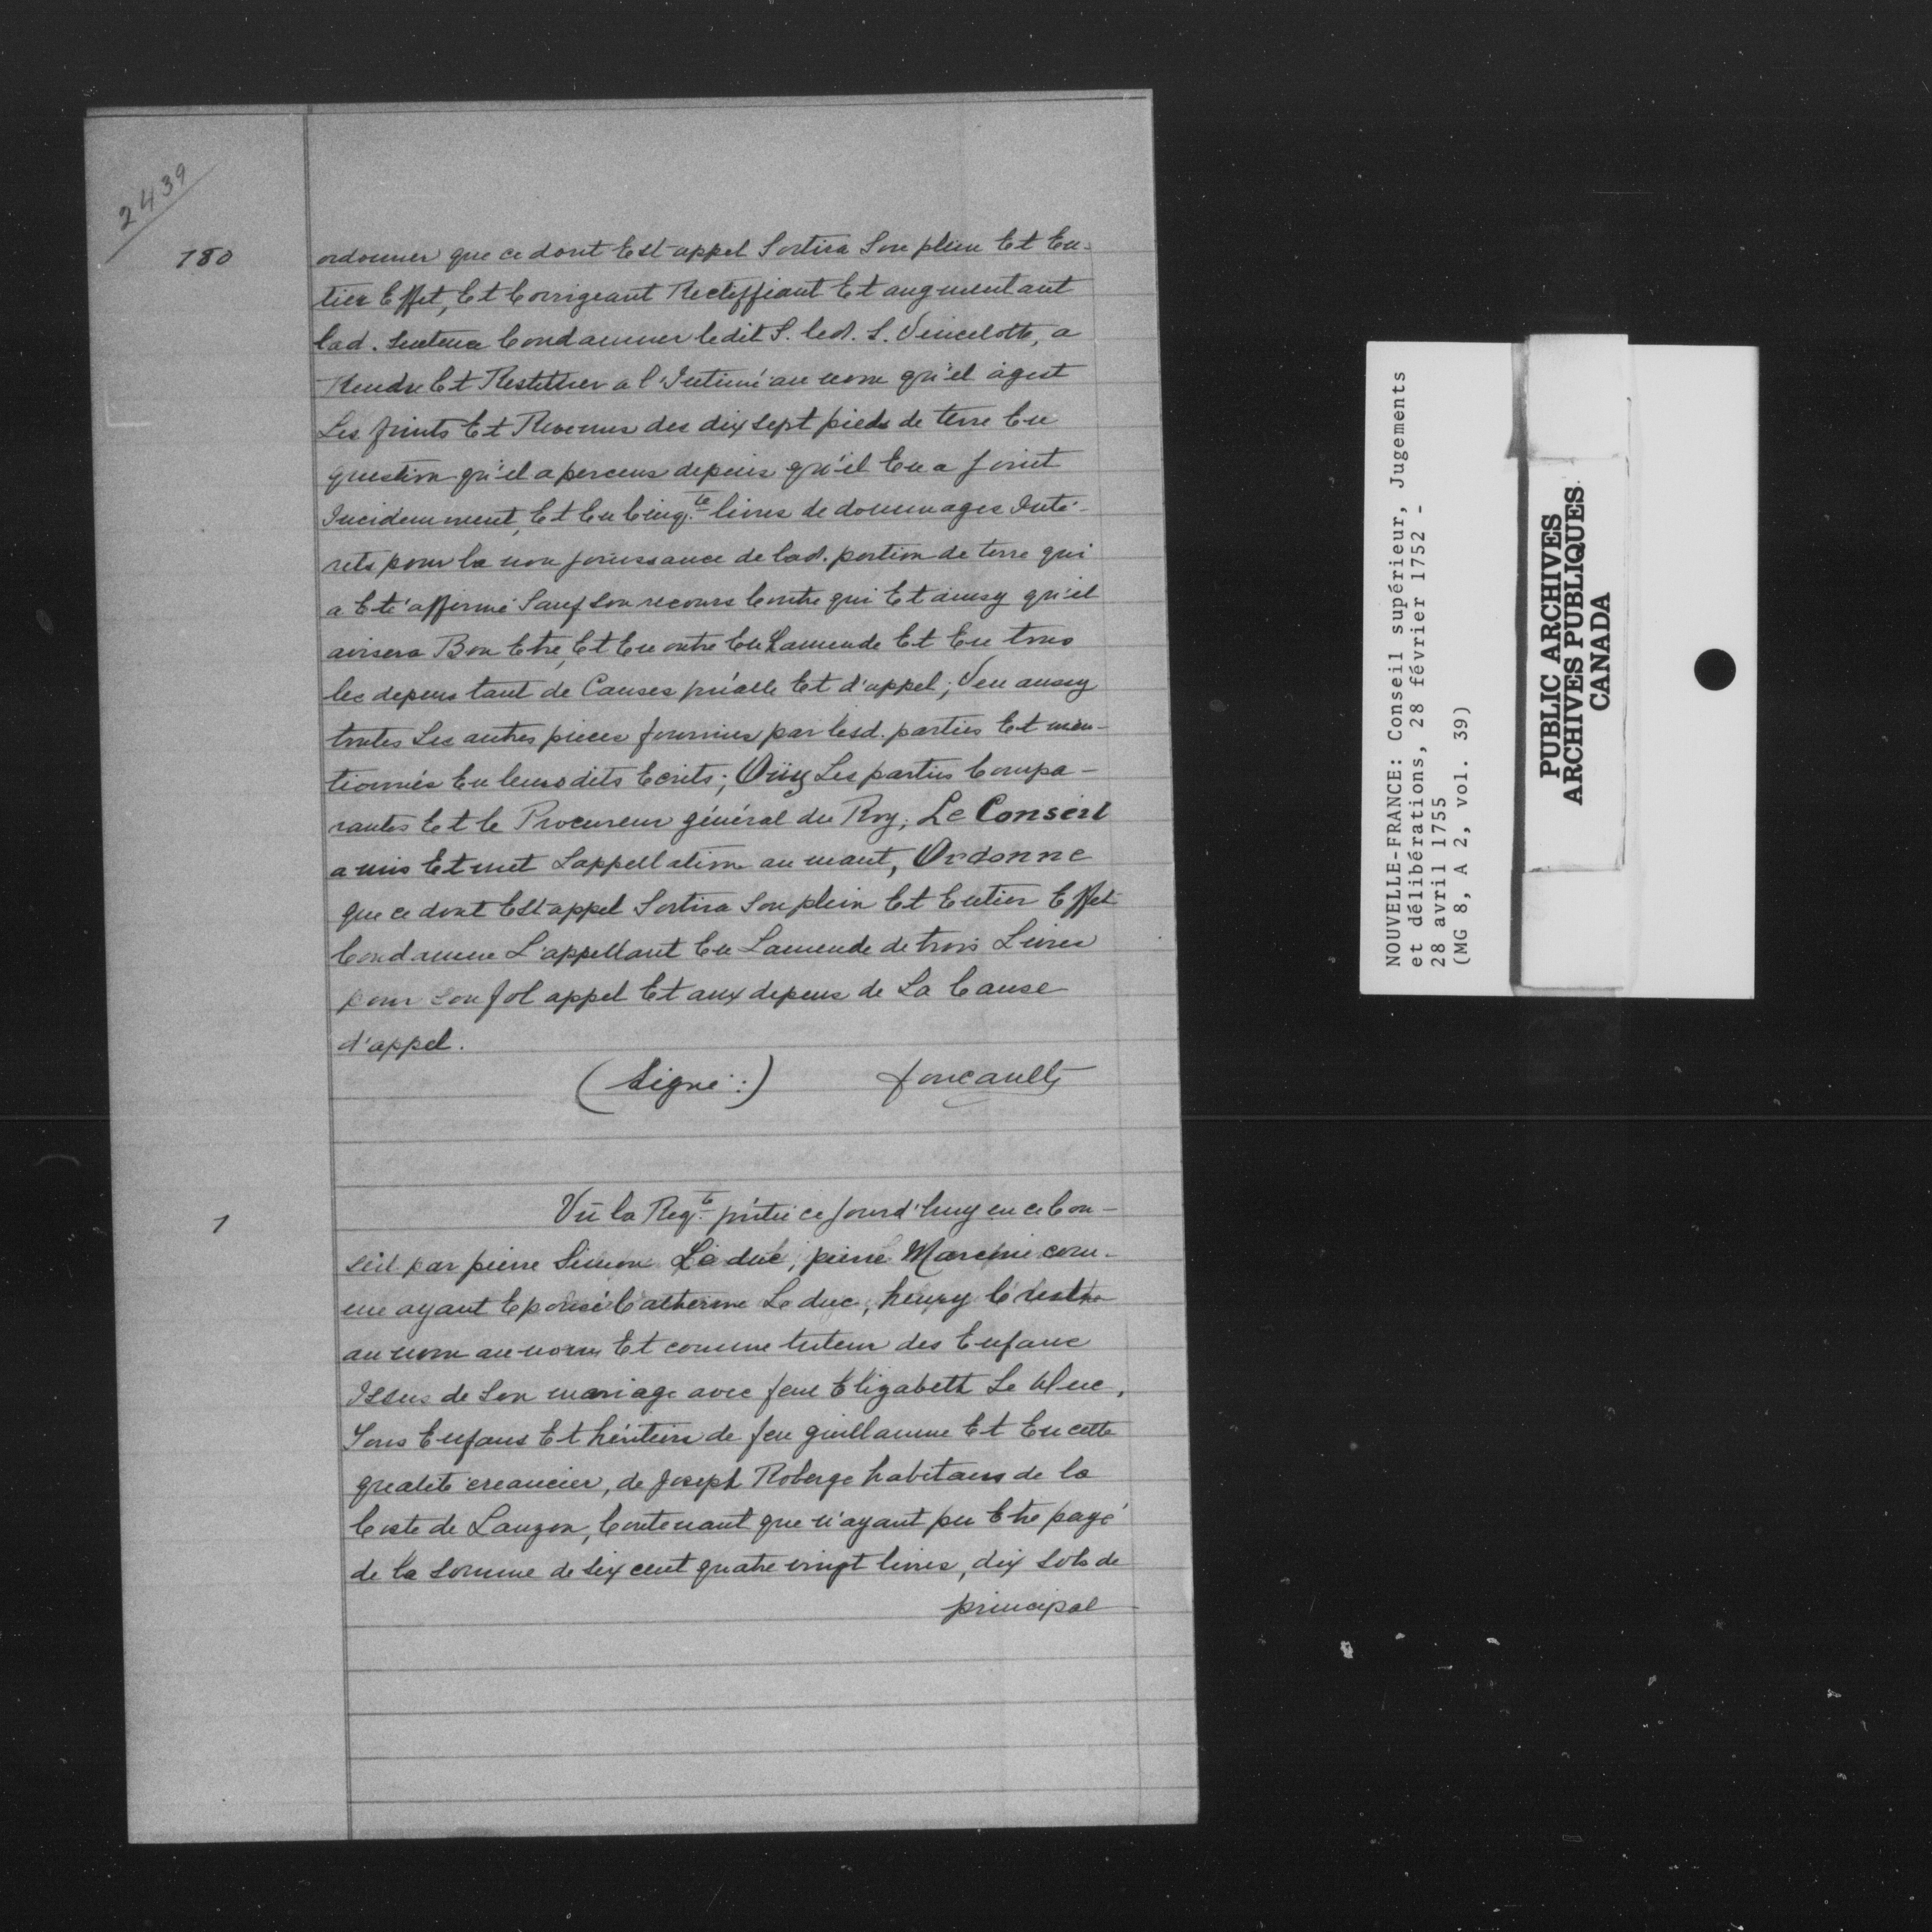 2439
180
ordonner que ce dont Est appel Sortira Son plein Et En-
tier Effet, Et Corrigeant Rectiffiant Et augmentant
lad. Sentence Condamner ledit S. led. S. Vincelotte, a
Rendre Et Restituer a l'Intimé au nom qu'il agist
Les fruits Et Revenus des dix sept pieds de terre En
question qu'il a perceus depuis qu'il En a Jouit
Induement, Et En Cinq.te livres de dommages Inté-
rets pour la non jouissance de lad. portion de terre qui
a Eté affermé Sauf Son recours Contre qui Et ainsy qu'il
avisera Bon Etre, Et En outre En Lamende Et En tous
les depens tant de Causes p'alle Et d'appel; Veu aussy
toutes Les autres pieces fournies par lesd. parties Et men-
tionnés En leurs dits Ecrits; Oüy Les parties Compa-
rantes Et le Procureur général du Roy; Le Conseil
a mis Et met L'appellation au neant, Ordonne
que ce dont Est appel Sortira Son plein Et Entier Effet
Condamne L'appellant En Lamende de trois Livres
pour Son fol appel Et aux depens de La Cause
d'appel.
(Signé:) foucault
1
Vû la Req.te p'ntée ce Jourd'huy en ce Con-
seil par pierre Simon Le duc, pierre com-
me ayant Epousé Catherine Le duc, henry
au nom au nom Et comme tuteur des Enfans
Issus de Son mariage avec feue Elizabeth Le duc,
Tous Enfans Et héritiers de feu guillaume Et En cette
qualité creancier, de Joseph Roberge habitans de la
Coste de Lauzon, Contenant que n'ayant pu Etre payé
de la Somme de Six cent quatre vingt livres, dix Sols de
principal
NOUVELLE-FRANCE: Conseil supérieur, Jugements
et délibérations, 28 février 1752 -
28 avril 1755
(MG 8, A 2, vol. 39)
PUBLIC ARCHIVES
ARCHIVES PUBLIQUES
CANADA